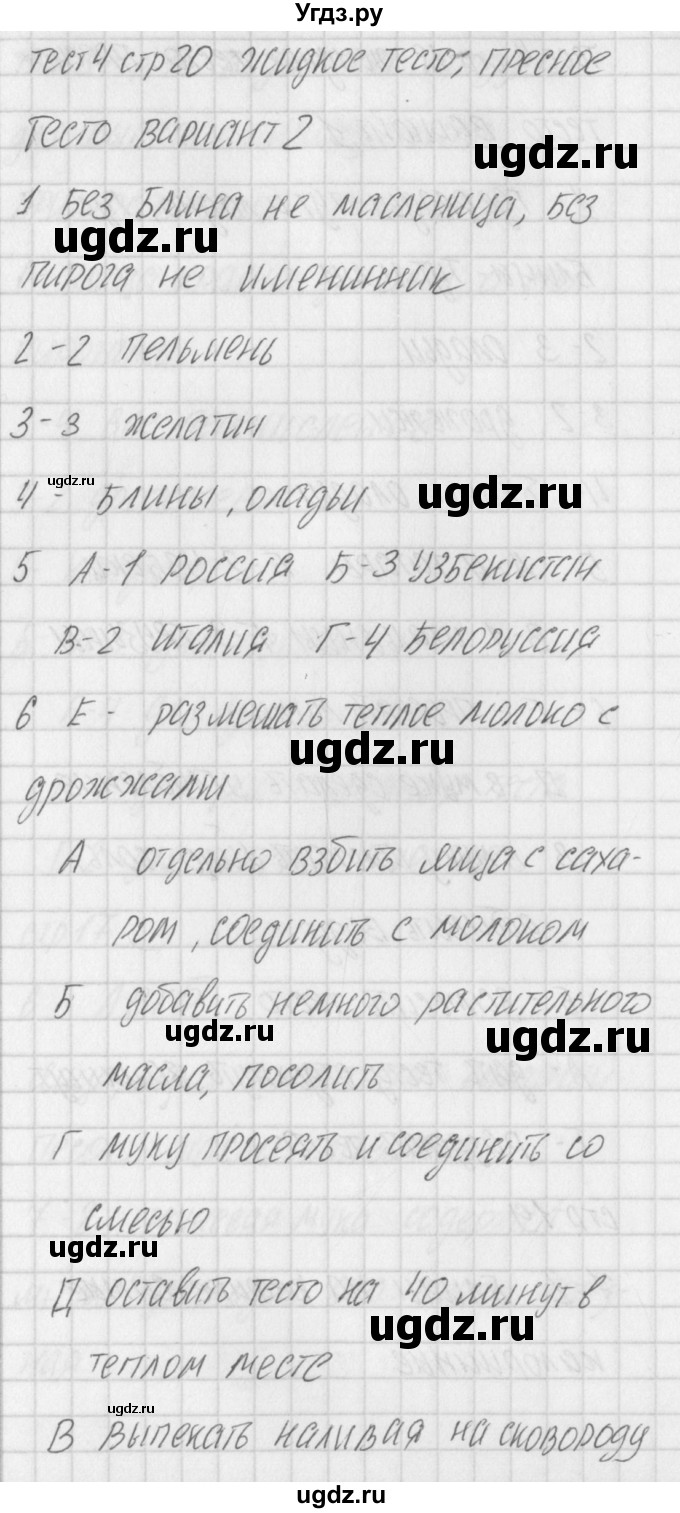 Угдз.ру
тест 4 стр 20 жидкое тесто; пресное
тесто вариант 2
ugdz.ru
1 без блина не масленица, без
ugdz.ru
пирога не именинник
2-2 пельмень
3-3 желатин
ugdz.ru
ugdz.ru
4 - блины, оладьи
5 А-1 Россия Б-3 Узбекистан
В-2 Италия Г-4 Белоруссия
6 Е - размешать теплое молоко с
ugdz.ru
дрожжами
А отдельно взбить яйца с саха-
ром, соединить с молоком
Б добавить немного растительного
ugdz.ru
ugdz.ru
масла, посолить
Г муку просеять и соединить со
смесью
ugdz.ru
Д оставить тесто на 40 минут в
ugdz.ru
теплом месте
ugdz.ru
В выпекать наливая на сковороду
ugdz.ru